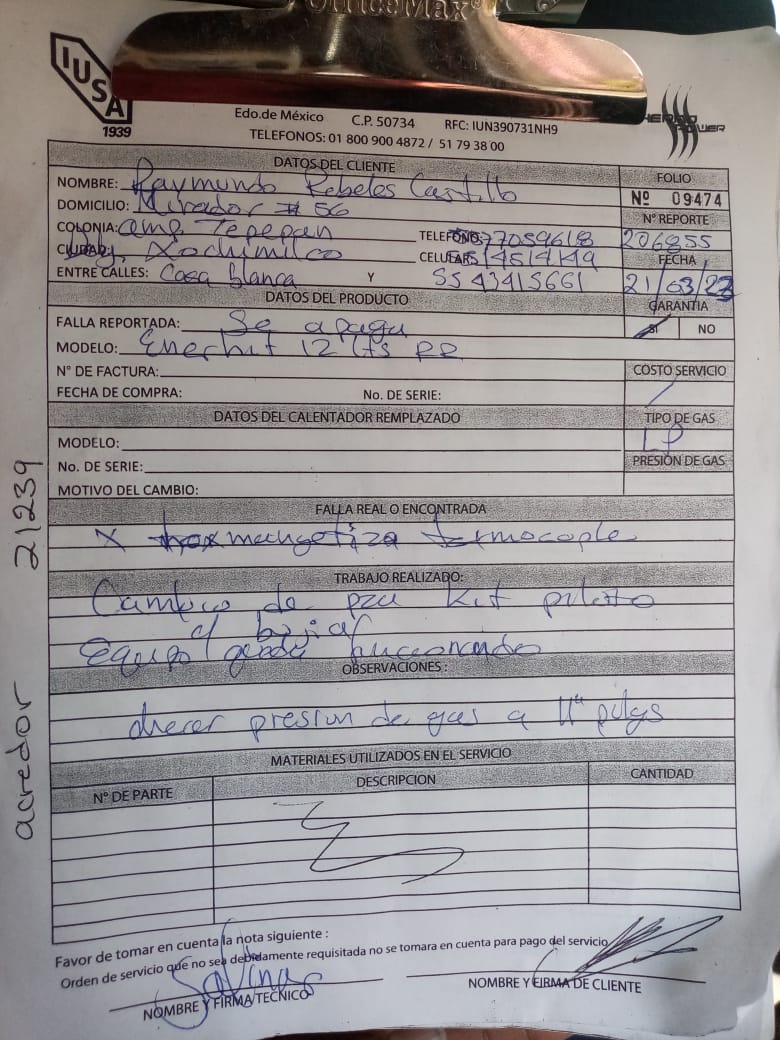 OfficeMax®
IUSA
1939
Edo.de México C.P. 50734 RFC: IUN390731NH9
TELEFONOS: 01 800 900 4872 / 51 79 38 00
POWER
DATOS DEL CLIENTE
FOLIO
NOMBRE: Raymundo Rebeles Castillo
Nº 09474
DOMICILIO: Mirador # 56
N° REPORTE
COLONIA: amp. Tepepan TELEFONO:
206855
CIUDAD: Xochimilco CELULAR:
FECHA
ENTRE CALLES: Casa blanca Y 5543415661
21/03/23
DATOS DEL PRODUCTO
GARANTIA
FALLA REPORTADA: Se apaga
SI NO
MODELO: Enerhit 12 lts RR
N° DE FACTURA:
COSTO SERVICIO
FECHA DE COMPRA: No. DE SERIE:
DATOS DEL CALENTADOR REMPLAZADO
TIPO DE GAS
MODELO:
LP
No. DE SERIE:
PRESIÓN DE GAS
MOTIVO DEL CAMBIO:
FALLA REAL O ENCONTRADA
X termocople
TRABAJO REALIZADO:
Cambio de pza Kit piloto
c/ bujia
Equipo queda funcionando
OBSERVACIONES :
checar presion de gas a 11" pulgs
MATERIALES UTILIZADOS EN EL SERVICIO
N° DE PARTE DESCRIPCION CANTIDAD
Favor de tomar en cuenta la nota siguiente :
Orden de servicio que no sea debidamente requisitada no se tomara en cuenta para pago del servicio
Salinas
NOMBRE Y FIRMA TECNICO NOMBRE Y FIRMA DE CLIENTE
acredor 21239